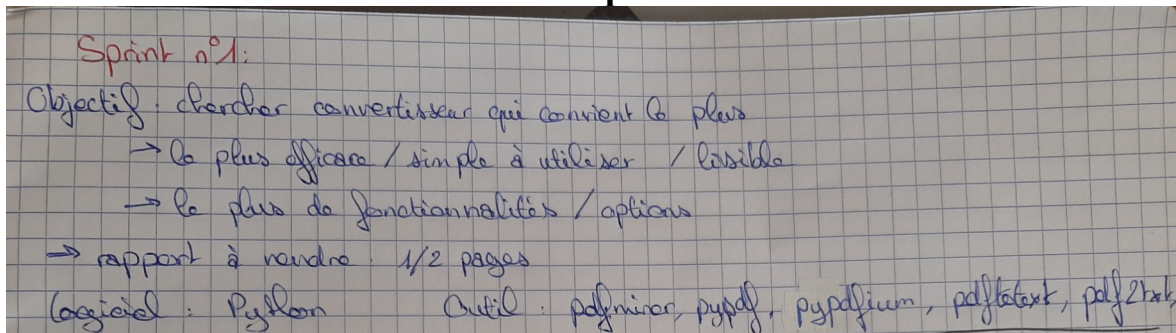 Sprint n°1:
Objectif : chercher convertisseur qui convient le plus
→ le plus efficace / simple à utiliser / lisible
→ le plus de fonctionnalités / options
→ rapport à rendre : 1/2 pages
Logiciel : Python Outil : pdfminer, pypdf, pypdfium, pdftotext, pdf2txt